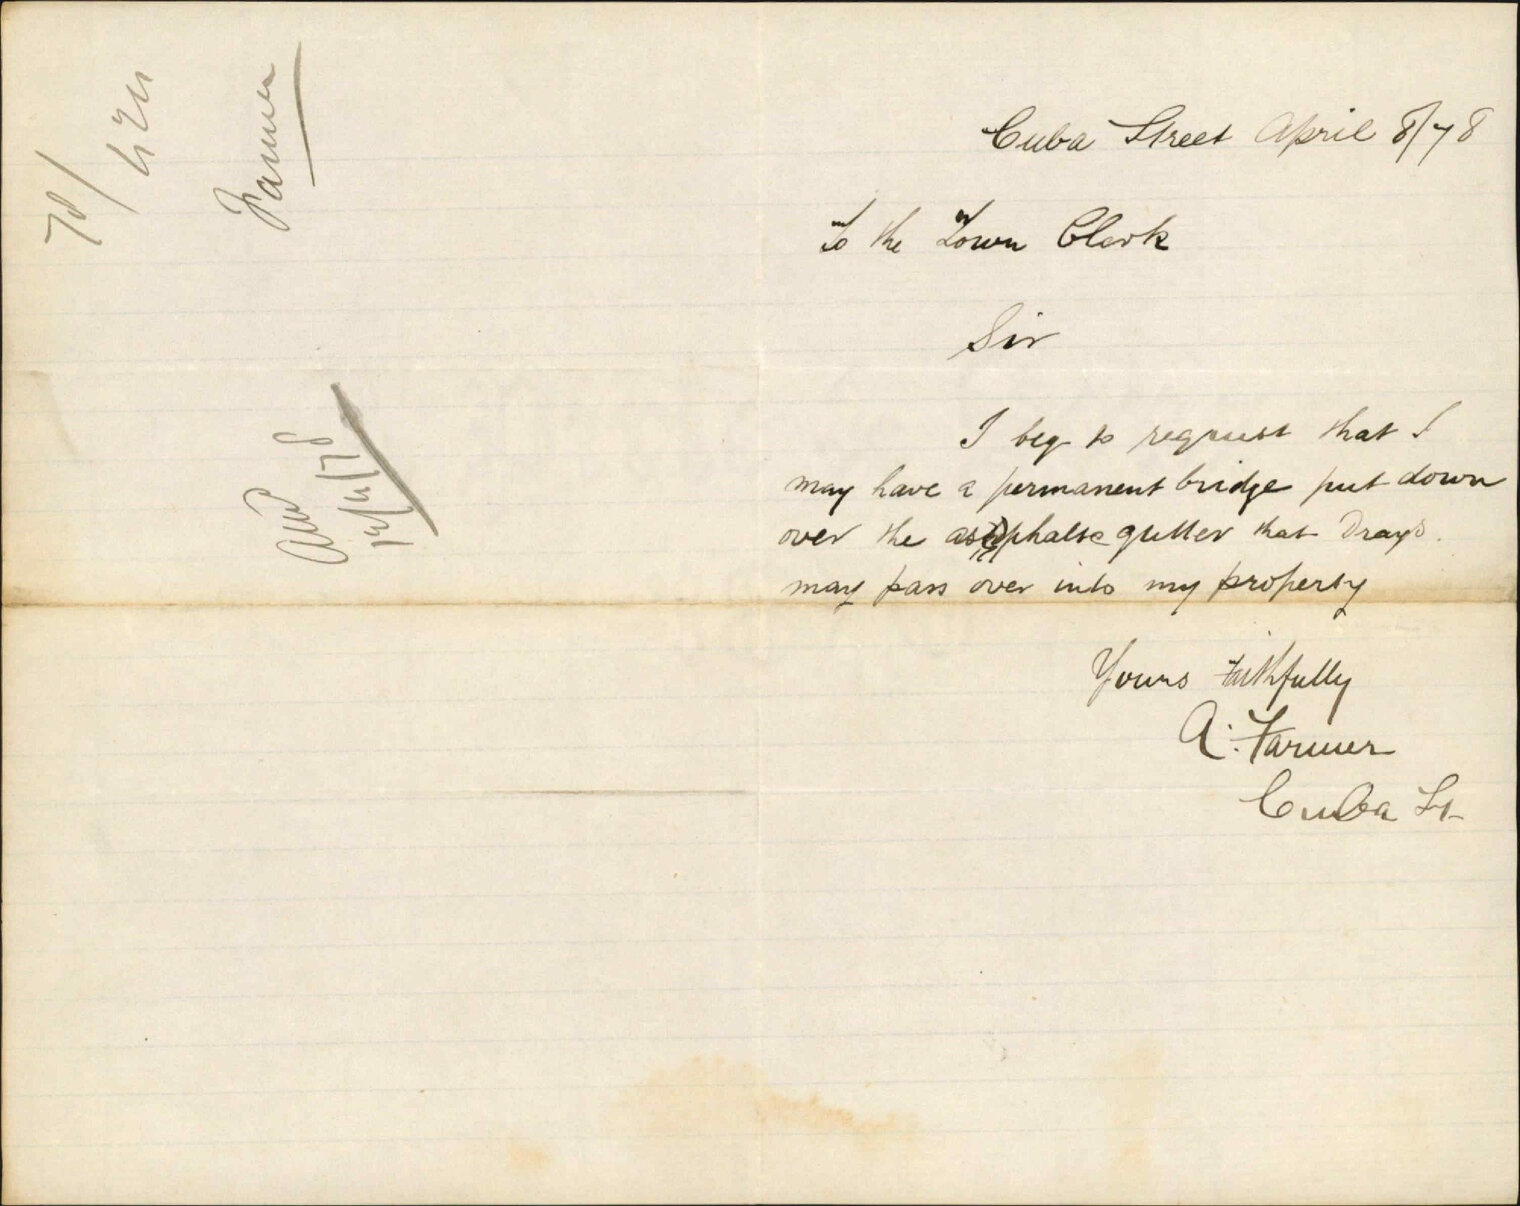 Cuba Street April 8/78
To the Town Clerk
Sir
I beg to request that I
may have a permanent bridge put down
over the asphalte gutter that Drays
may pass over into my property
Yours faithfully
A. Farmer
Cuba St
78/
Farmer